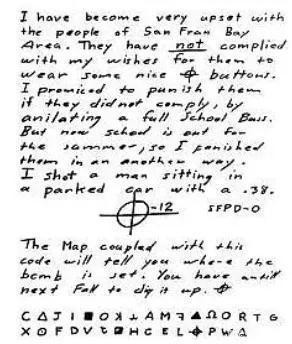 I have become very upset with
the people of San Fran Bay
Area. They have not complied
with my wishes for them to
wear some nice ⌖ buttons.
I promiced to punish them
if they did not comply, by
anilating a full School Buss.
But now school is out for
the sammer, so I punished
them in an another way.
I shot a man sitting in
a parked car with a .38.
⌖-12 SFPD-0
The Map coupled with this
code will tell you where the
bomb is set. You have antill
next Fall to dig it up. ⌖
C Δ J I ■ O ꓘ ⊥ A M ꟻ ▲ Ω O R T G
X ⊙ F D V ⵒ ◪ H C E L ⌖ P W Δ